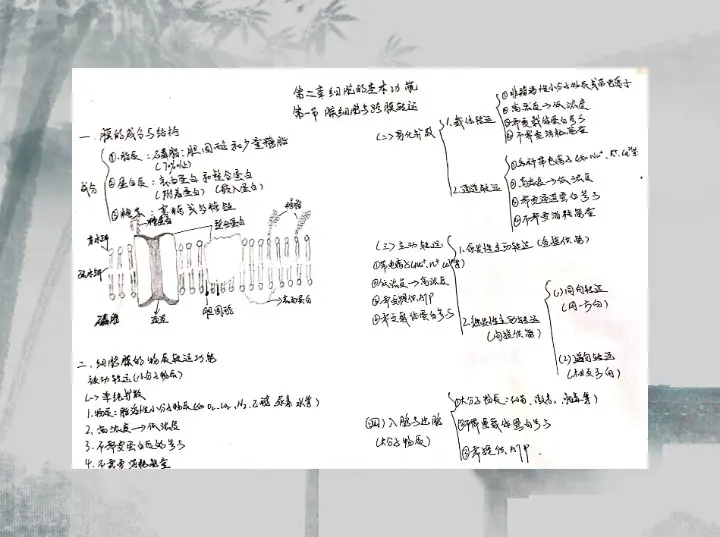 第二章细胞的基本功能
第一节 膜细胞与跨膜转运
一.膜的成分与结构
成分
①脂质:磷脂,胆固醇和少量糖脂
(70%以上)
②蛋白质:表面蛋白和整合蛋白
(附着蛋白)(嵌入蛋白)
③糖类:寡糖或多糖链
糖蛋白
整合蛋白
糖脂
亲水端
疏水端
磷脂
通道
胆固醇
表面蛋白
二.细胞膜的物质转运功能
被动转运(小分子物质)
(一)单纯扩散
1.物质:脂溶性小分子物质(如O₂、CO₂、N₂、乙醇 尿素 水等)
2.高浓度→低浓度
3.不需要蛋白质参与
4.不需要消耗能量
(二)易化扩散
1.载体转运
①非脂溶性小分子物质或带电离子
②高浓度→低浓度
③需要载体蛋白参与
④不需要消耗能量
2.通道转运
②高浓度→低浓度
③需要通道蛋白参与
④不需要消耗能量
(三)主动转运
①带电离子(如Na⁺、K⁺、Ca²⁺等)
②低浓度→高浓度
③需要提供ATP
④需要载体蛋白参与
1.原发性主动转运(直接供能)
2.继发性主动转运
(间接供能)
(1)同向转运
(同一方向)
(2)逆向转运
(相反方向)
(四)入胞与出胞
(大分子物质)
②不需要载体蛋白参与
③需提供ATP.